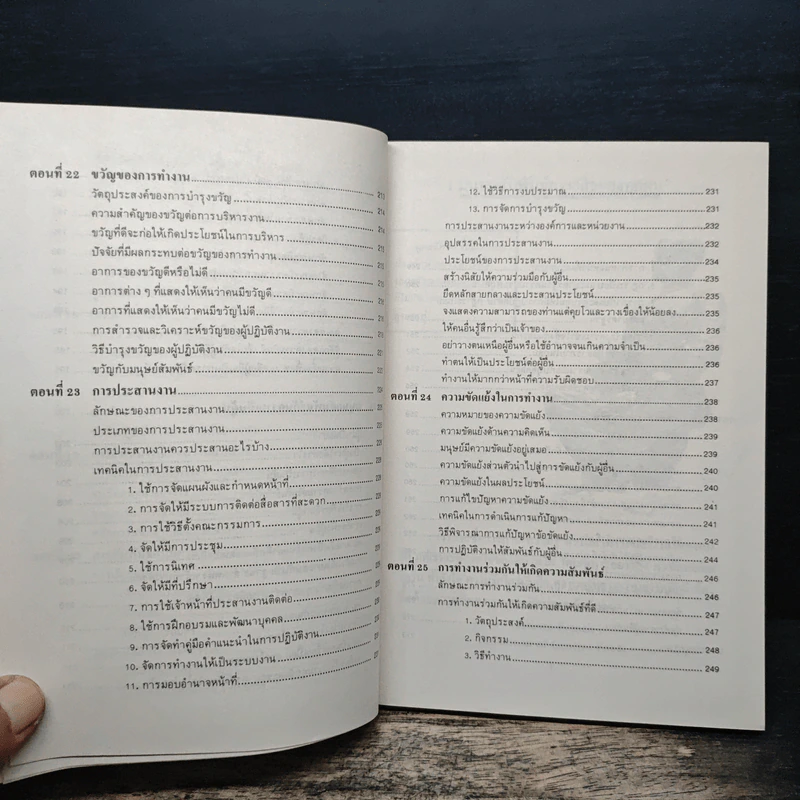 ตอนที่ 22 ขวัญของการทำงาน
วัตถุประสงค์ของการบำรุงขวัญ
ความสำคัญของขวัญต่อการบริหารงาน
ขวัญที่ดีจะก่อให้เกิดประโยชน์ในการบริหาร
ปัจจัยที่มีผลกระทบต่อขวัญของการทำงาน
อาการของขวัญดีหรือไม่ดี
อาการต่าง ๆ ที่แสดงให้เห็นว่าคนมีขวัญดี
อาการที่แสดงให้เห็นว่าคนมีขวัญไม่ดี
การสำรวจและวิเคราะห์ขวัญของผู้ปฏิบัติงาน
วิธีบำรุงขวัญของผู้ปฏิบัติงาน
ขวัญกับมนุษย์สัมพันธ์
ตอนที่ 23 การประสานงาน
ลักษณะของการประสานงาน
ประเภทของการประสานงาน
การประสานงานควรประสานอะไรบ้าง
เทคนิคในการประสานงาน
1. ใช้การจัดแผนผังและกำหนดหน้าที่
2. การจัดให้มีระบบการติดต่อสื่อสารที่สะดวก
3. การใช้วิธีตั้งคณะกรรมการ
4. จัดให้มีการประชุม
5. ใช้การนิเทศ
6. จัดให้มีที่ปรึกษา
7. การใช้เจ้าหน้าที่ประสานงานติดต่อ
8. ใช้การฝึกอบรมและพัฒนาบุคคล
9. การจัดทำคู่มือคำแนะนำในการปฏิบัติงาน
10. จัดการทำงานให้เป็นระบบงาน
11. การมอบอำนาจหน้าที่
12. ใช้วิธีการงบประมาณ 231
13. การจัดการบำรุงขวัญ 231
การประสานงานระหว่างองค์การและหน่วยงาน 232
อุปสรรคในการประสานงาน 232
ประโยชน์ของการประสานงาน 234
สร้างนิสัยให้ความร่วมมือกับผู้อื่น 235
ยึดหลักสายกลางและประสานประโยชน์ 235
จงแสดงความสามารถของท่านแต่คุยโวและวางเขื่องให้น้อยลง 235
ให้คนอื่นรู้สึกว่าเป็นเจ้าของ 236
อย่าวางตนเหนือผู้อื่นหรือใช้อำนาจจนเกินความจำเป็น 236
ทำตนให้เป็นประโยชน์ต่อผู้อื่น 236
ทำงานให้มากกว่าหน้าที่ความรับผิดชอบ 237
ตอนที่ 24 ความขัดแย้งในการทำงาน 238
ความหมายของความขัดแย้ง 238
ความขัดแย้งด้านความคิดเห็น 239
มนุษย์มีความขัดแย้งอยู่เสมอ 239
ความขัดแย้งส่วนตัวนำไปสู่การขัดแย้งกับผู้อื่น 240
ความขัดแย้งในผลประโยชน์ 240
การแก้ไขปัญหาความขัดแย้ง 241
เทคนิคในการดำเนินการแก้ปัญหา 241
วิธีพิจารณาการแก้ปัญหาข้อขัดแย้ง 242
การปฏิบัติงานให้สัมพันธ์กับผู้อื่น 244
ตอนที่ 25 การทำงานร่วมกันให้เกิดความสัมพันธ์ 246
ลักษณะการทำงานร่วมกัน 246
การทำงานร่วมกันให้เกิดความสัมพันธ์ที่ดี 247
1. วัตถุประสงค์ 247
2. กิจกรรม 248
3. วิธีทำงาน 249